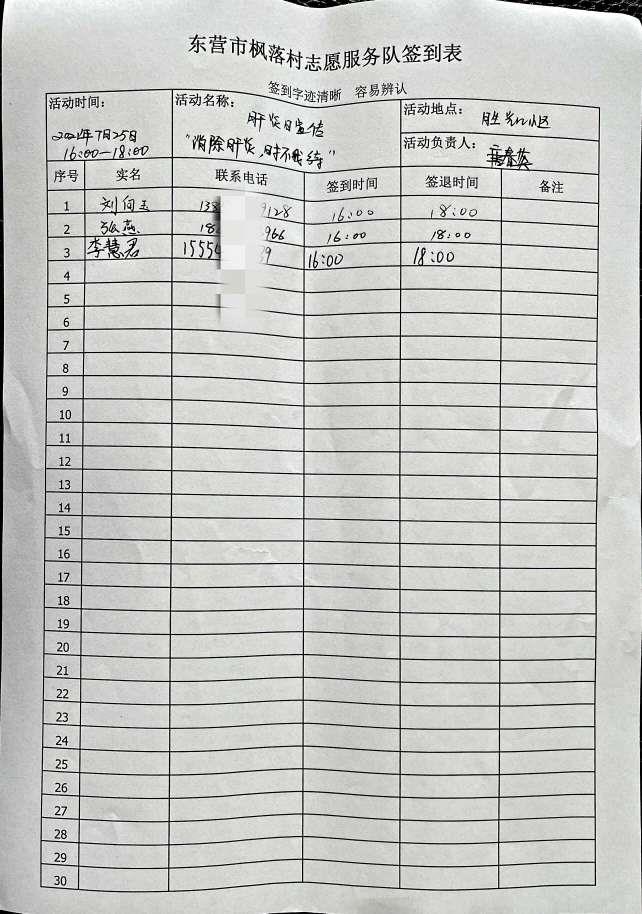 东营市枫落村志愿服务队签到表
签到字迹清晰 容易辨认
活动时间： 2021年7月25日 16:00—18:00
活动名称： 肝炎日宣传 “消除肝炎，时不我待”
活动地点： 胜利小区
活动负责人：
序号 实名 联系电话 签到时间 签退时间 备注
1 刘向玉 138 9128 16:00 18:00
2 张燕 18 966 16:00 18:00
3 李慧君 1555 39 16:00 18:00
4
5
6
7
8
9
10
11
12
13
14
15
16
17
18
19
20
21
22
23
24
25
26
27
28
29
30